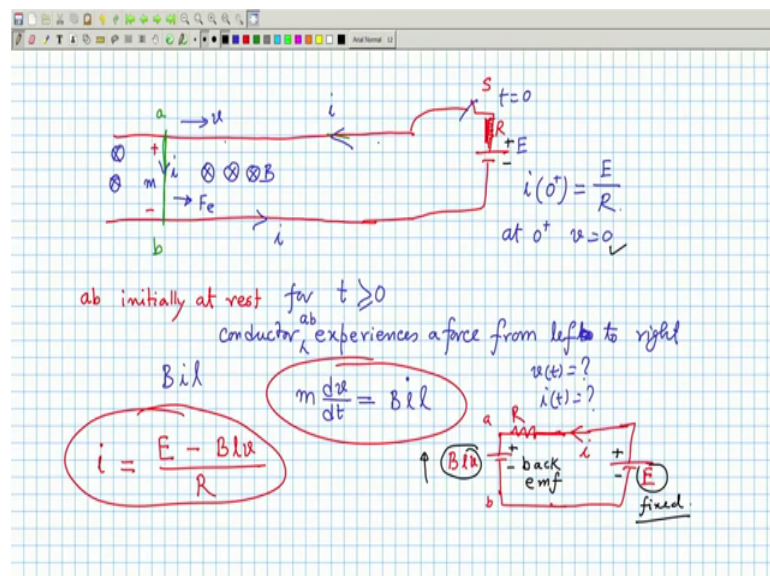 Arial Normal 12
S
t=0
a
→ v
i
R
+
E
-
+
i
m
⊗ ⊗ ⊗ B
→ Fe
-
b
i
i(0⁺) = E/R
at 0⁺ v=0 ✓
ab initially at rest for t ⩾ 0
conductor ab experiences a force from left to right
Bil
m dv/dt = Bil
v(t) = ?
i(t) = ?
i = (E - Blv)/R
a
R
i
↑ Blv
+
- back
emf
+
-
E
fixed.
b